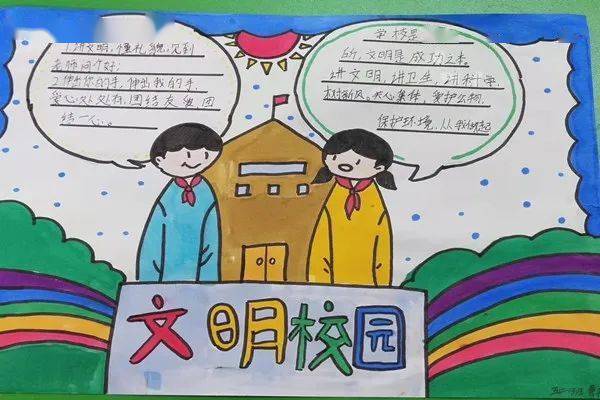 讲文明，懂礼貌，见到
老师问个好。
你的手，伸出我的手，
爱心处处有，团结友爱团
结一心。
学校是
文明是成功之本。
讲文明，讲卫生，讲科学，
树新风，关心集体，爱护公物，
保护环境，从我做起
文明校园